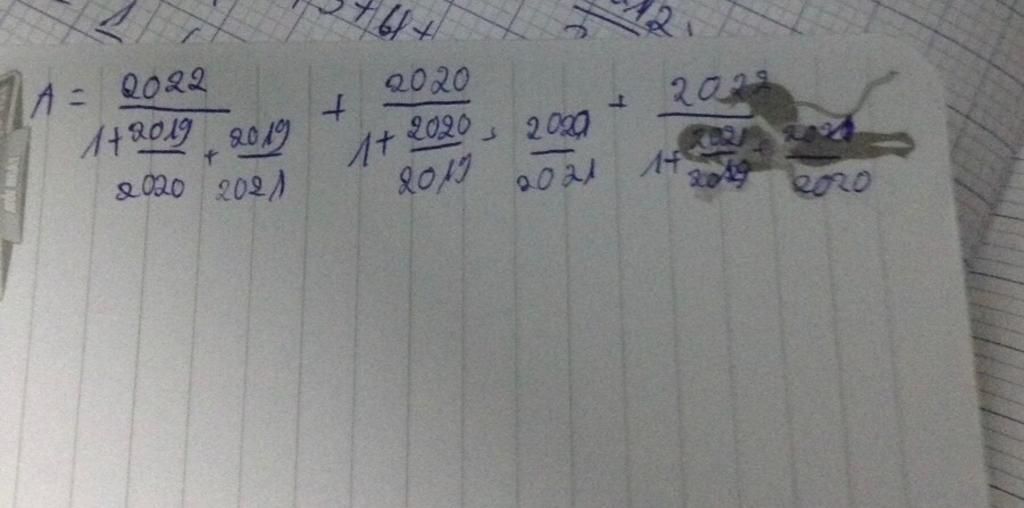 A = 2022 / (1 + 2019/2020 + 2019/2021) + 2020 / (1 + 2020/2019 + 2020/2021) + 2022 / (1 + 2021/2019 + 2021/2020)